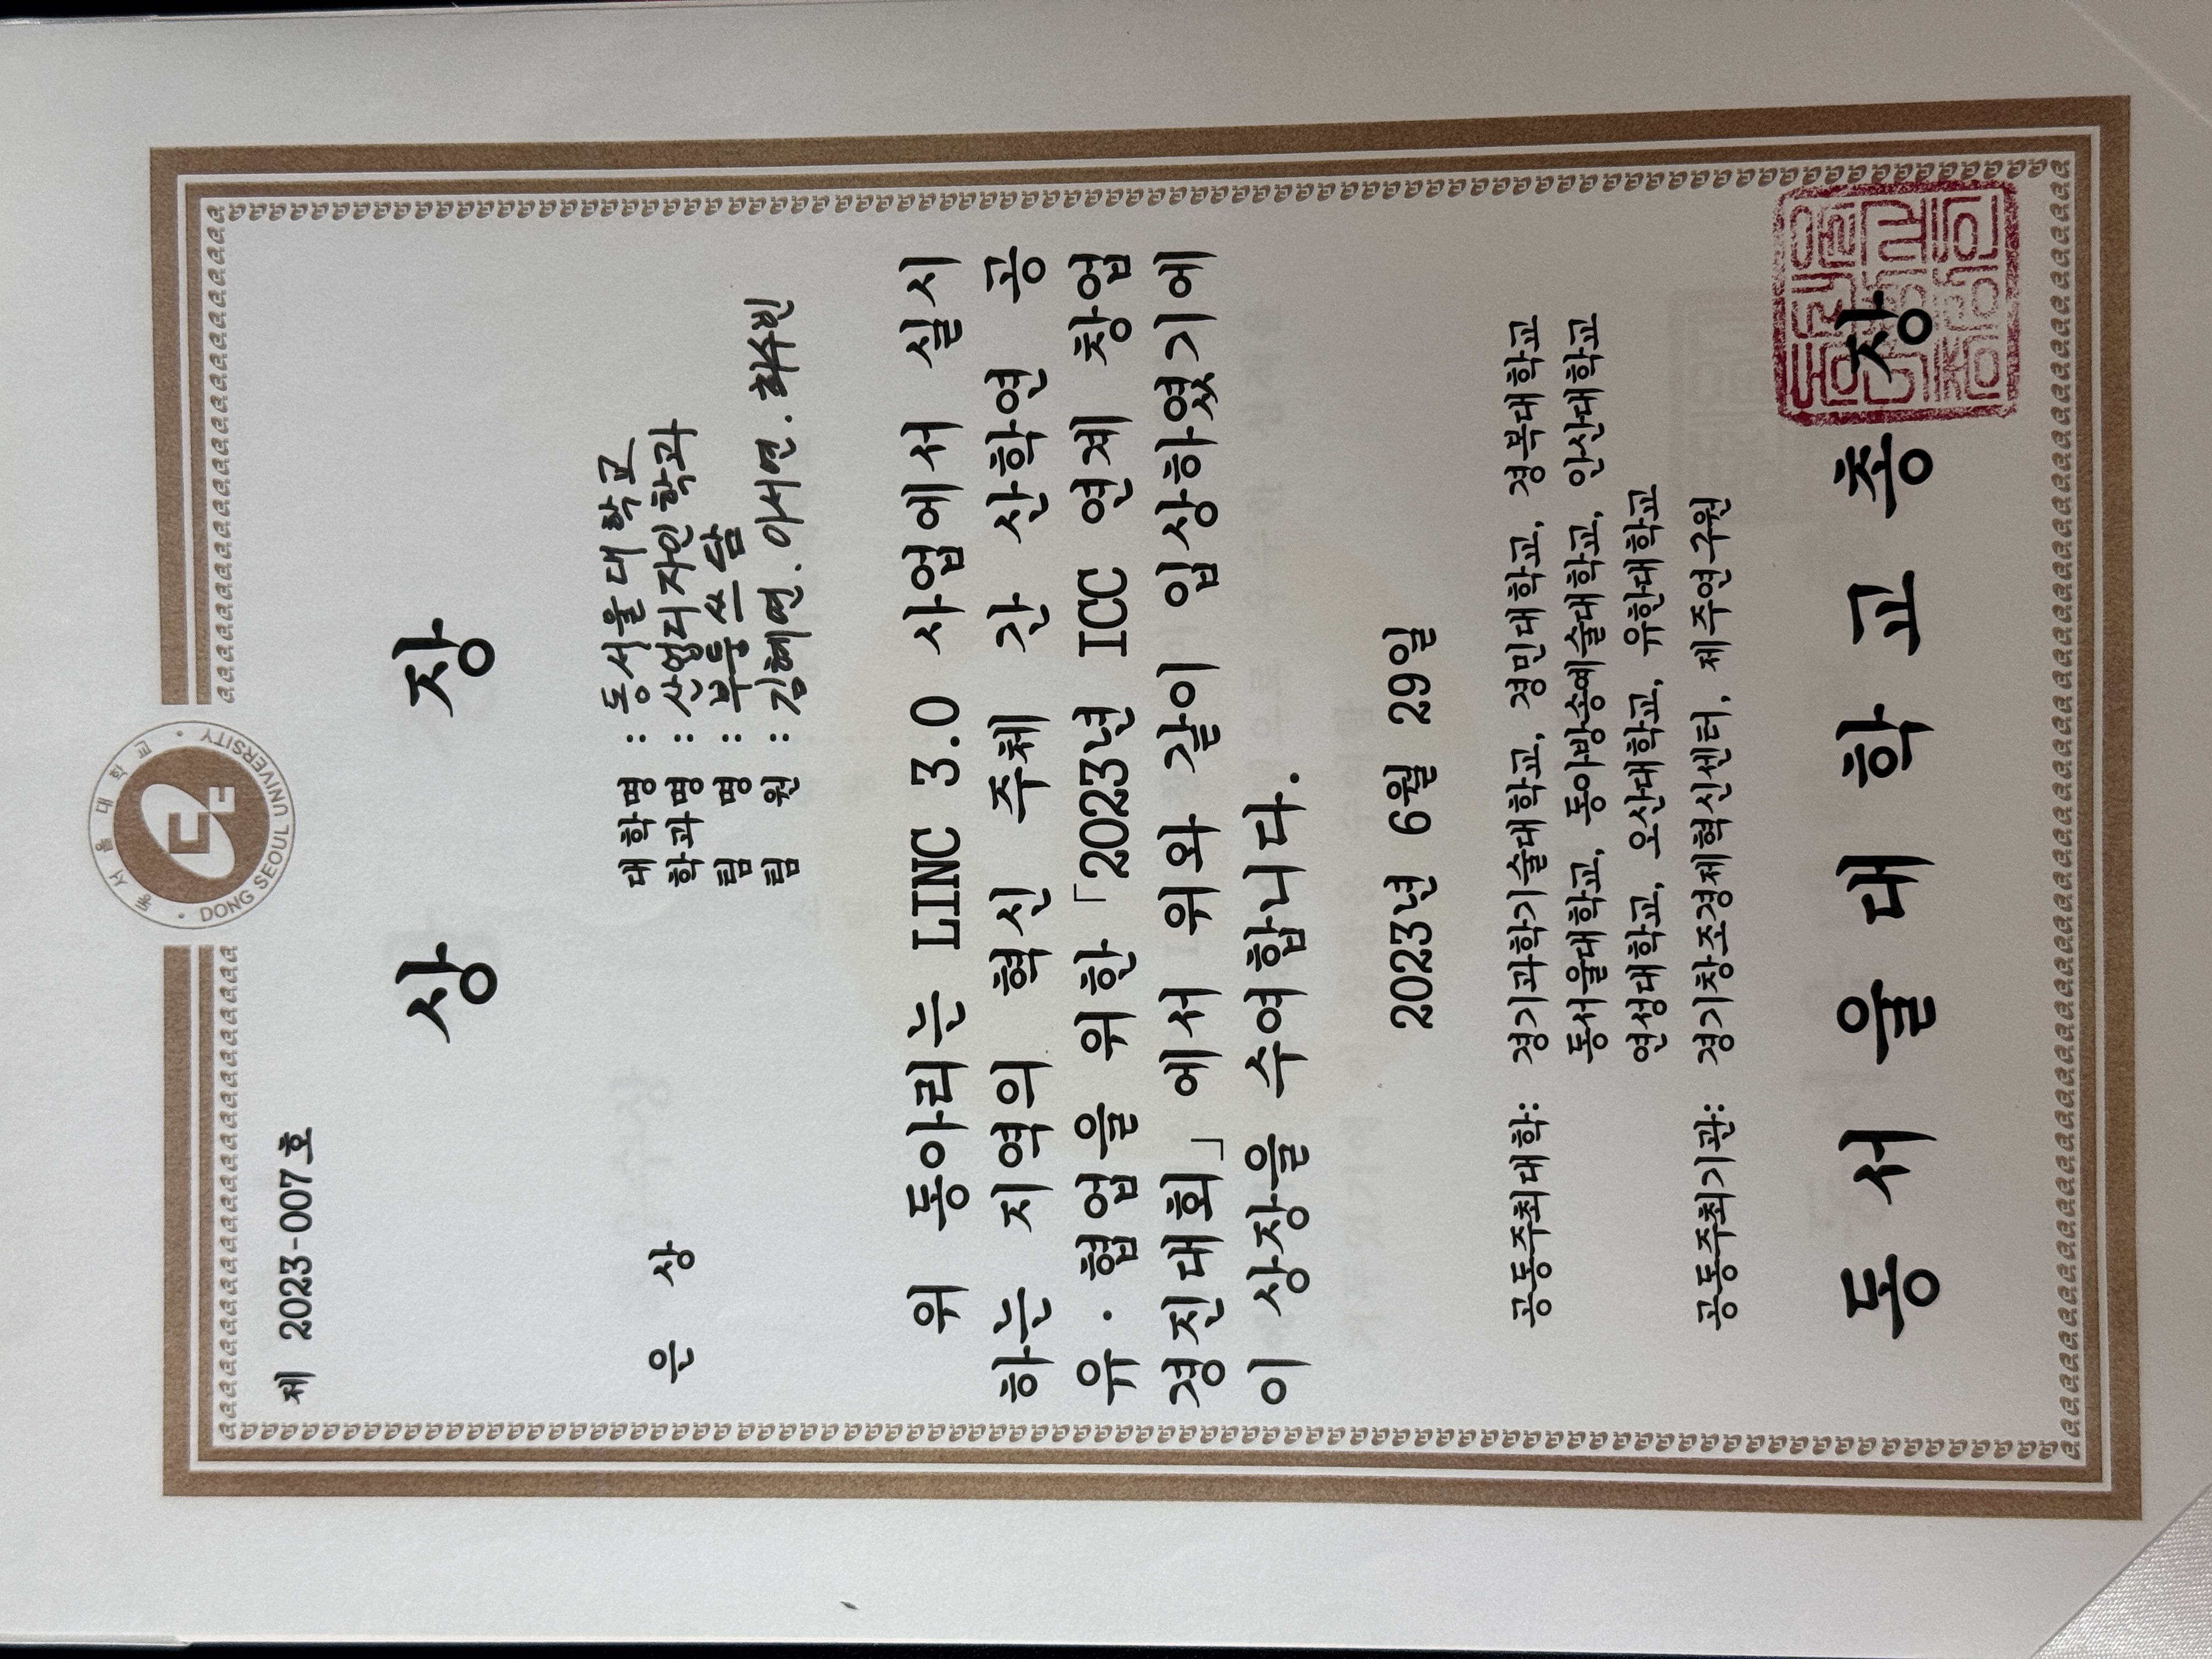 동서울대학교
DONG SEOUL UNIVERSITY
제 2023-007호
상 장
은 상
대학명 : 동서울대학교
학과명 : 산업디자인학과
팀 명 : 부퉁쓰담
팀 원 : 김혜연. 이서연. 최수빈
위 동아리는 LINC 3.0 사업에서 실시
하는 지역의 혁신 주체 간 산학연 공
유·협업을 위한 「2023년 ICC 연계 창업
경진대회」에서 위와 같이 입상하였기에
이 상장을 수여합니다.
2023년 6월 29일
공동주최대학: 경기과학기술대학교, 경민대학교, 경복대학교
동서울대학교, 동아방송예술대학교, 안산대학교
연성대학교, 오산대학교, 유한대학교
공동주최기관: 경기창조경제혁신센터, 제주연구원
동서울대학교총장